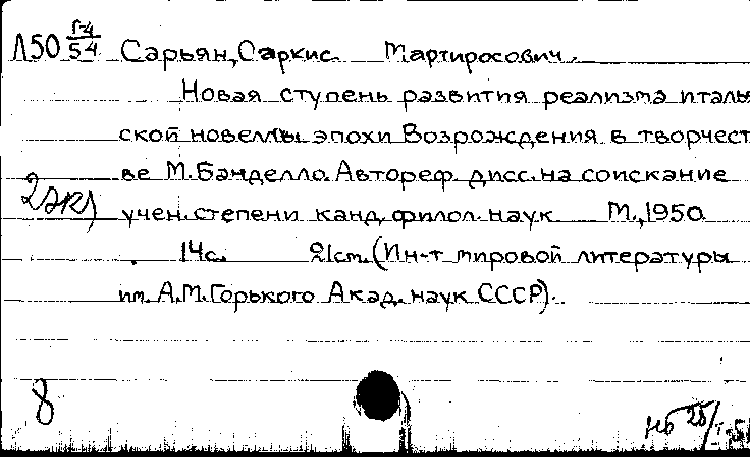 Л50 Г-4/54 Сарьян, Саркис Мартиросович.
Новая ступень развития реализма италь
ской новеллы эпохи Возрождения в творчест
ве М. Банделло. Автореф. дисс. на соискание
2 экз
учен. степени канд. филол. наук М., 1950
14с. 21см. (Ин-т мировой литературы
им. А.М. Горького Акад. наук СССР).
8